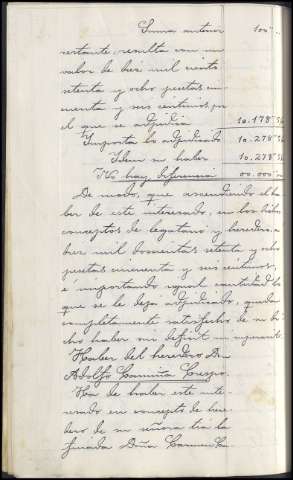 Suma anterior 100"
restante, resulta con un
valor de diez mil ciento
setenta y ocho pesetas cin-
cuenta y seis centimos, por
el que se adjudica 10.178"56
Importa lo adjudicado 10.278"56
Idem su haber 10.278"56
No hay diferencia 00.000"
De modo, que ascendiendo el ha-
ber de este interesado, en los dichos
conceptos de legatario y heredero, a
diez mil doscientas setenta y ocho
pesetas cincuenta y seis centimos,
é importando igual cantidad lo
que se le deja adjudicado, queda
completamente satisfecho de su di-
cho haber sin deficit
Haber del heredero Dn
Adolfo Crespo
Ha de haber este inte-
resado en concepto de here-
dero de su señora tia la
finada Doña Carmen C.